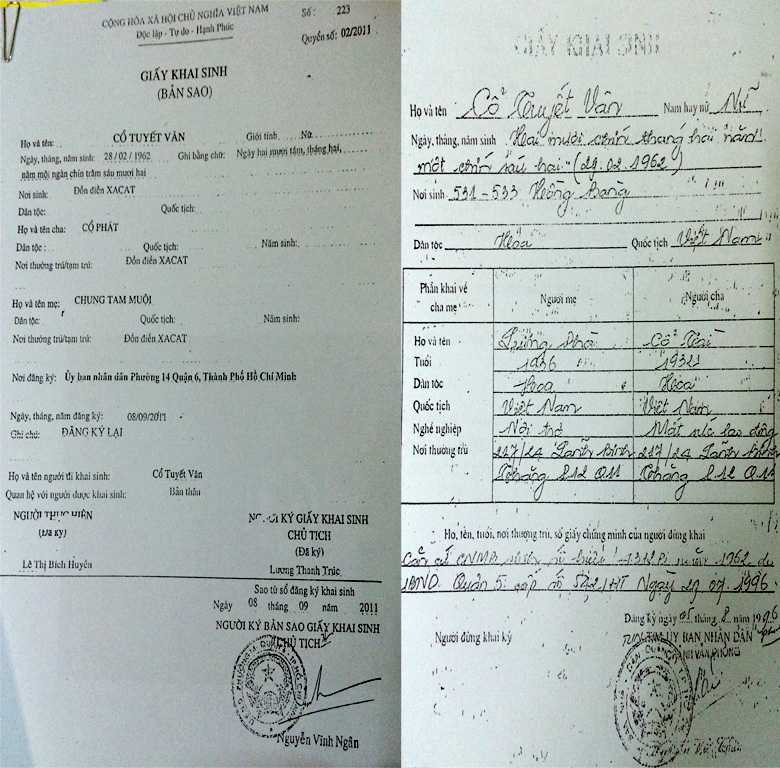 CỘNG HÒA XÃ HỘI CHỦ NGHĨA VIỆT NAM
Độc lập - Tự do - Hạnh Phúc
Số: 223
Quyển số: 02/2011
GIẤY KHAI SINH
(BẢN SAO)
Họ và tên: CỔ TUYẾT VÂN Giới tính Nữ
Ngày, tháng, năm sinh: 28/02/1962 Ghi bằng chữ: Ngày hai mươi tám, tháng hai,
năm một ngàn chín trăm sáu mươi hai
Nơi sinh: Đồn điền XACAT
Dân tộc: Quốc tịch:
Họ và tên cha: CỔ PHÁT
Dân tộc: Quốc tịch: Năm sinh:
Nơi thường trú/tạm trú: Đồn điền XACAT
Họ và tên mẹ: CHUNG TAM MUỘI
Dân tộc: Quốc tịch: Năm sinh:
Nơi thường trú/tạm trú: Đồn điền XACAT
Nơi đăng ký: Ủy ban nhân dân Phường 14 Quận 6, Thành Phố Hồ Chí Minh
Ngày, tháng, năm đăng ký: 08/09/2011
Ghi chú: ĐĂNG KÝ LẠI
Họ và tên người đi khai sinh: Cổ Tuyết Vân
Quan hệ với người được khai sinh: Bản thân
NGƯỜI THỰC HIỆN
(Đã ký)
Lê Thị Bích Huyền
NGƯỜI KÝ GIẤY KHAI SINH
CHỦ TỊCH
(Đã ký)
Lương Thanh Trúc
Sao từ sổ đăng ký khai sinh
Ngày 08 tháng 09 năm 2011
NGƯỜI KÝ BẢN SAO GIẤY KHAI SINH
CHỦ TỊCH
Nguyễn Vĩnh Ngân
GIẤY KHAI SINH
Họ và tên Cổ Tuyết Vân Nam hay nữ Nữ
Ngày, tháng, năm sinh Hai mươi chín tháng hai năm
một chín sáu hai (29.02.1962)
Nơi sinh 531-533 Hồng Bàng
Dân tộc Hoa Quốc tịch Việt Nam
Phần khai về cha mẹ Người mẹ Người cha
Họ và tên Cổ
Tuổi 1936
Dân tộc Hoa Hoa
Quốc tịch Việt Nam Việt Nam
Nghề nghiệp Nội trợ Mất sức lao động
Nơi thường trú 217/24 Lãnh Binh 217/24 Lãnh Binh
Thăng P12 Q11 Thăng P12 Q11
Họ, tên, tuổi, nơi thường trú, số giấy chứng minh của người đứng khai
Căn cứ năm 1962 do
UBND Quận 5 cấp Ngày 27.07.1996
Đăng ký ngày 05 tháng 8 năm 1996
Người đứng khai ký
TM ỦY BAN NHÂN DÂN
CHÁNH VĂN PHÒNG